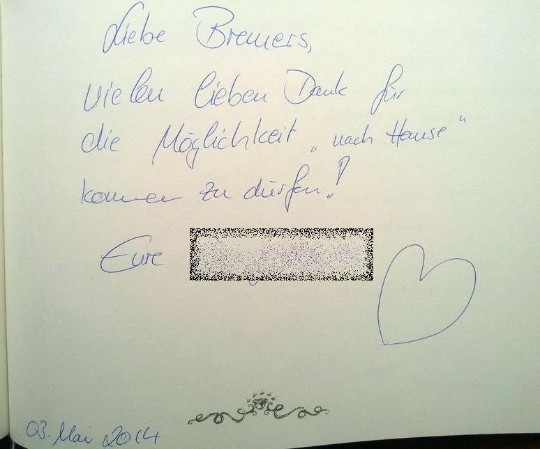 Liebe Bremers,
vielen lieben Dank für
die Möglichkeit „nach Hause“
kommen zu dürfen!
Eure
03. Mai 2014